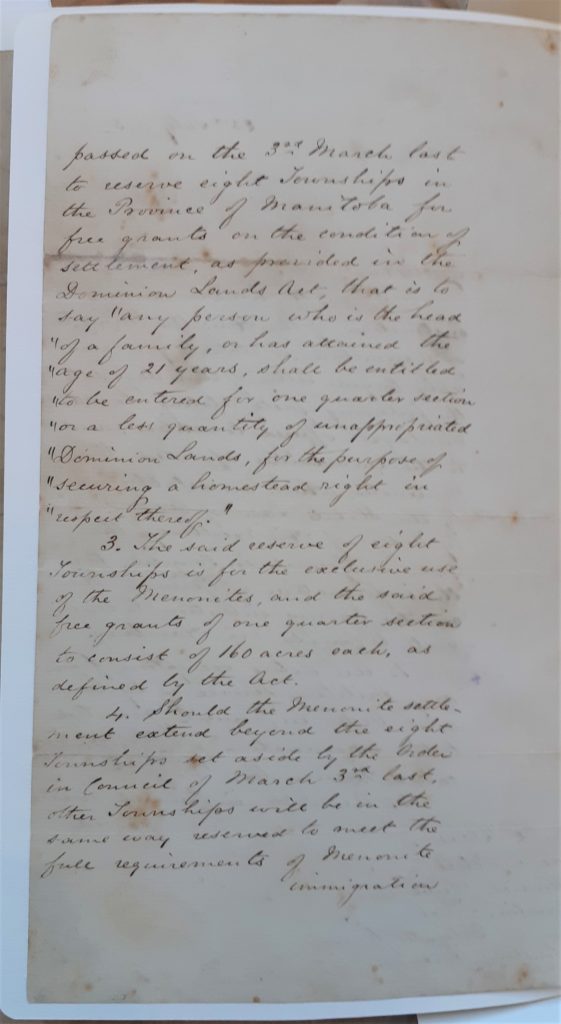 passed on the 3rd March last
to reserve eight Townships in
the Province of Manitoba for
free grants on the condition of
settlement, as provided in the
Dominion Lands Act, that is to
say "any person who is the head
"of a family, or has attained the
"age of 21 years, shall be entitled
"to be entered for one quarter section
"or a less quantity of unappropriated
"Dominion Lands, for the purpose of
"securing a homestead right in
"respect thereof."
3. The said reserve of eight
Townships is for the exclusive use
of the Menonites, and the said
free grants of one quarter section
to consist of 160 acres each, as
defined by the Act.
4. Should the Menonite settle-
ment extend beyond the eight
Townships set aside by the Order
in Council of March 3rd last,
other Townships will be in the
same way reserved to meet the
full requirements of Menonite
immigration